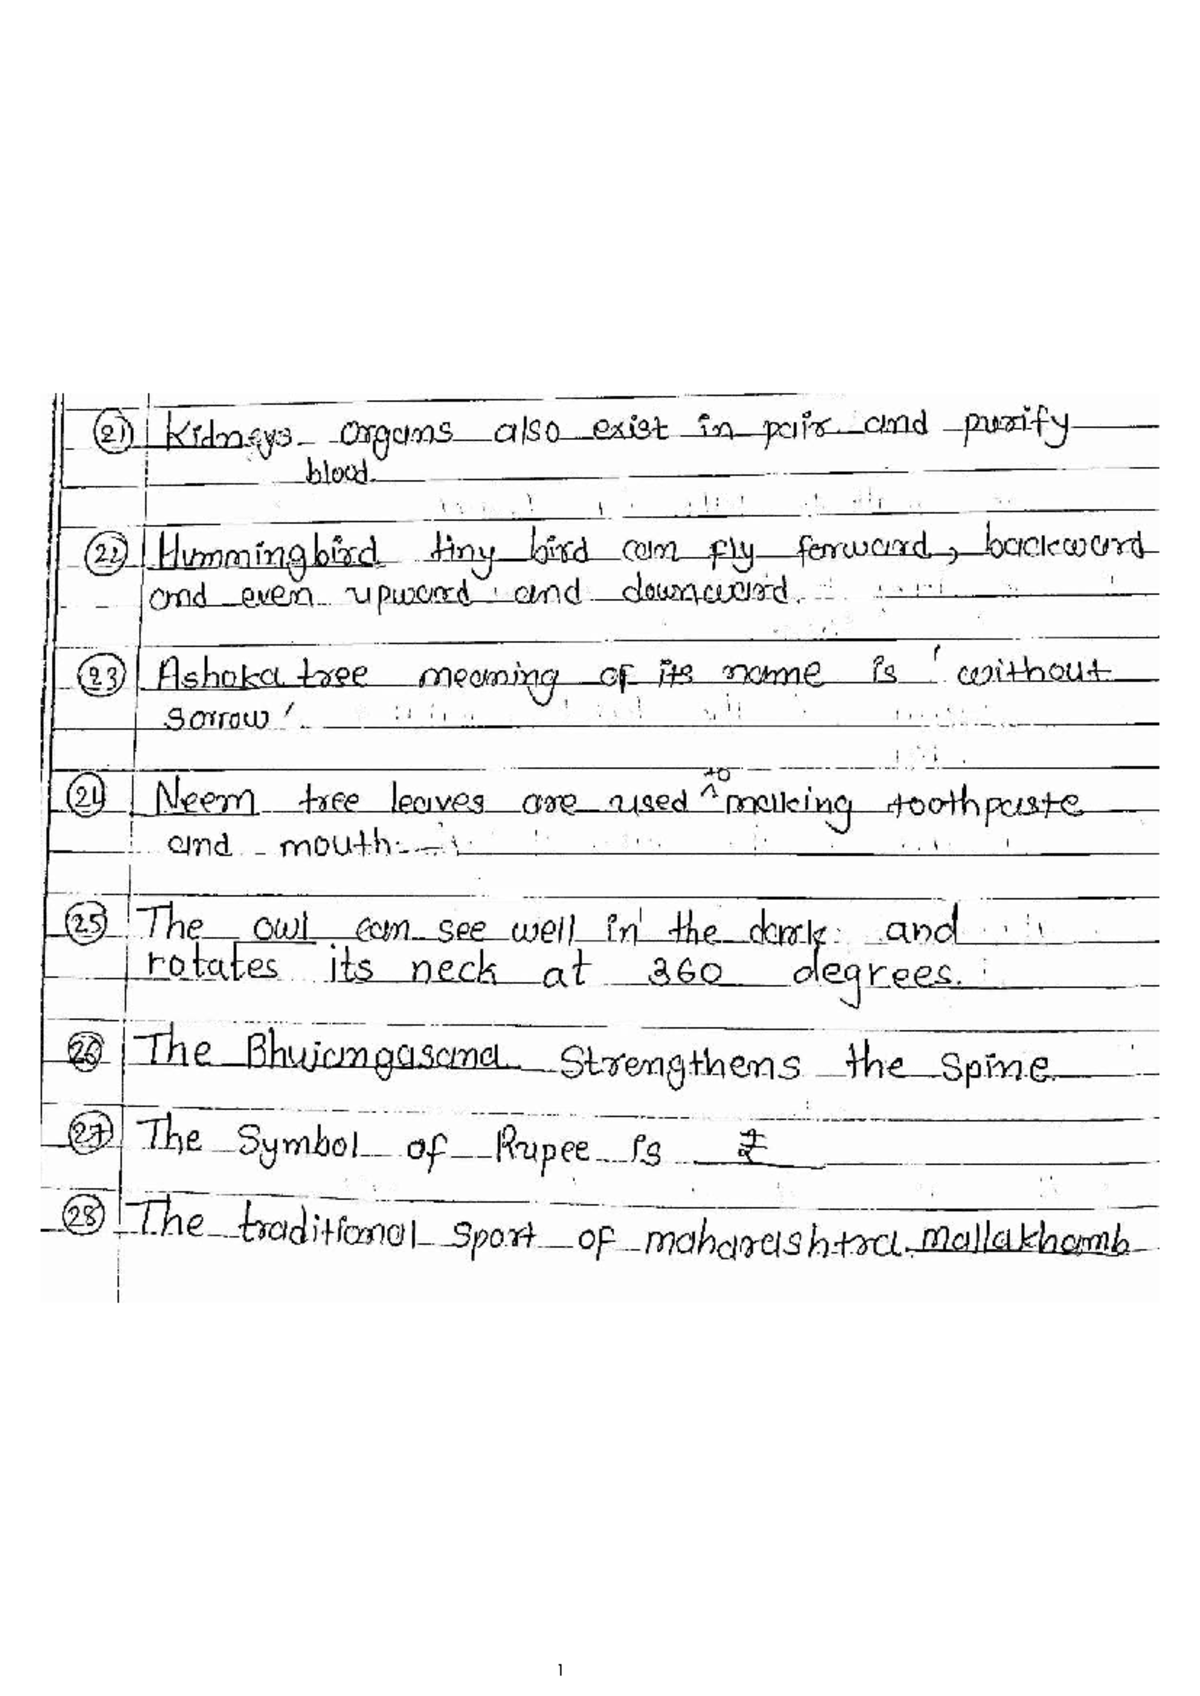 21) Kidneys organs also exist in pair and purify
blood.
22) Hummingbird tiny bird can fly forward, backward
and even upward and downward.
23) Ashoka tree meaning of its name is 'without
sorrow'.
24) Neem tree leaves are used to making toothpaste
and mouth.
25) The owl can see well in the dark and
rotates its neck at 360 degrees.
26) The Bhujangasana Strengthens the Spine
27) The Symbol of Rupee is ₹
28) The traditional Sport of maharashtra. Mallakhamb
1